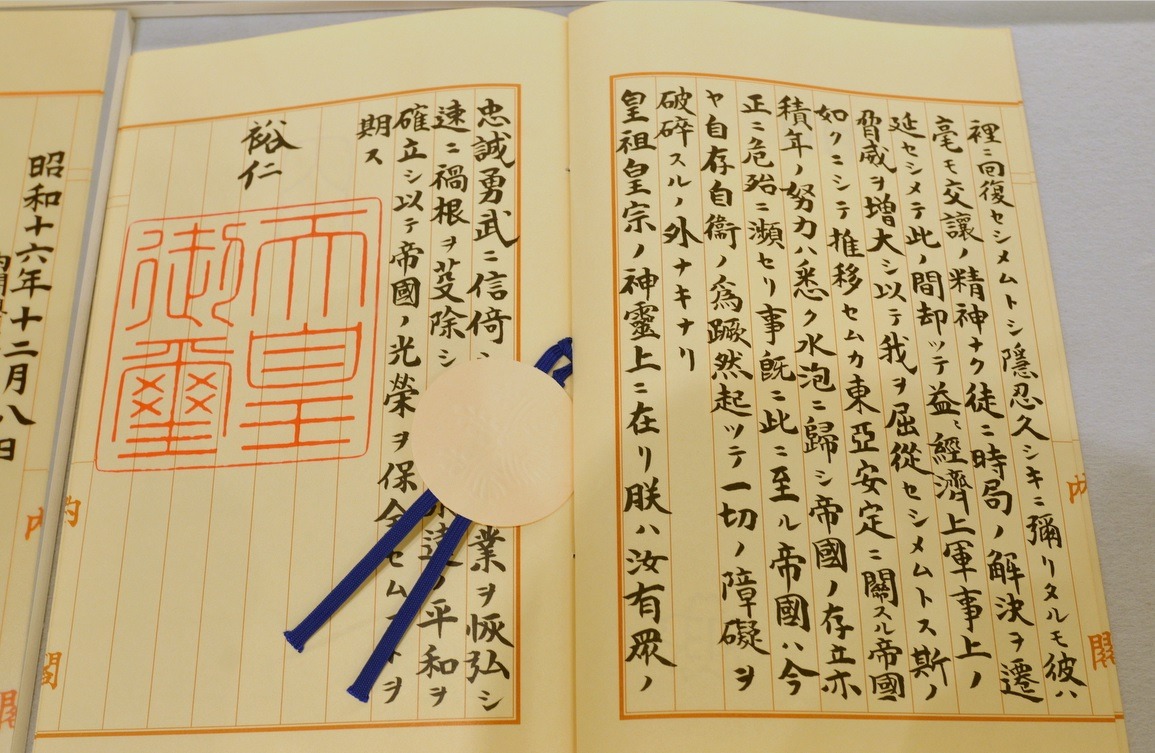 裡ニ囘復セシメムトシ隱忍久シキニ彌リタルモ彼ハ
毫モ交讓ノ精神ナク徒ニ時局ノ解決ヲ遷
延セシメテ此ノ間却ッテ益〻經濟上軍事上ノ
脅威ヲ增大シ以テ我ヲ屈從セシメムトス斯ノ
如クニシテ推移セムカ東亞安定ニ關スル帝國
積年ノ努力ハ悉ク水泡ニ歸シ帝國ノ存立亦
正ニ危殆ニ瀕セリ事旣ニ此ニ至ル帝國ハ今
ヤ自存自衞ノ爲蹶然起ッテ一切ノ障礙ヲ
破碎スルノ外ナキナリ
皇祖皇宗ノ神靈上ニ在リ朕ハ汝有眾ノ
忠誠勇武ニ信倚シ業ヲ恢弘シ
速ニ禍根ヲ芟除シ遠ノ平和ヲ
確立シ以テ帝國ノ光榮ヲ保全セムコトヲ
期ス
裕仁
天皇
御璽
昭和十六年十二月八日